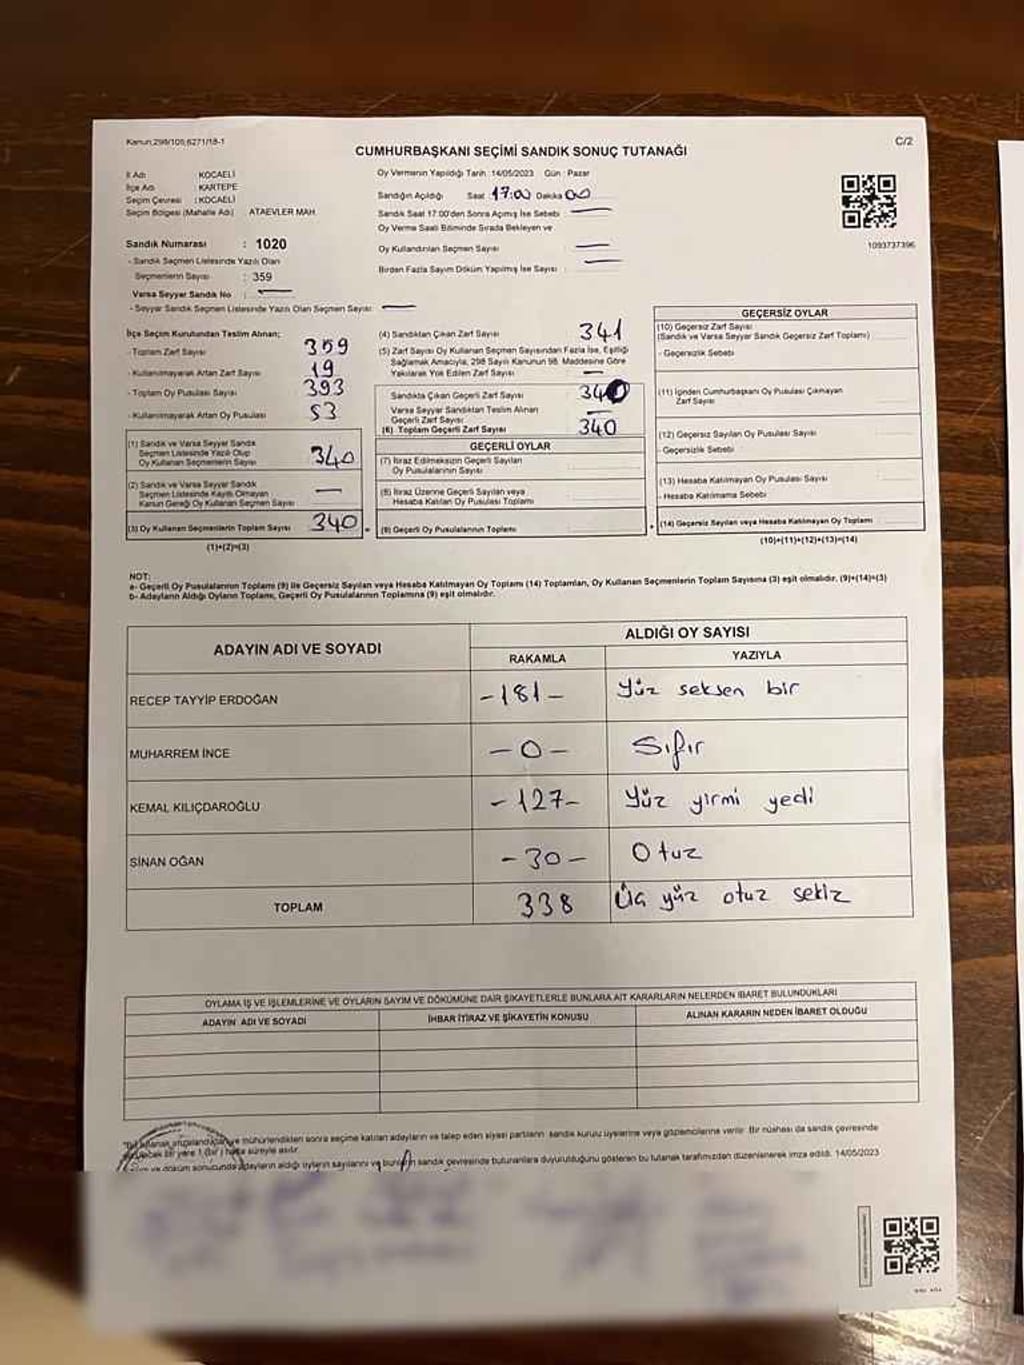 Kanun;298/105;6271/18-1
C/2
CUMHURBAŞKANI SEÇİMİ SANDIK SONUÇ TUTANAĞI
İl Adı KOCAELİ
İlçe Adı KARTEPE
Seçim Çevresi : KOCAELİ
Seçim Bölgesi (Mahalle Adı) ATAEVLER MAH.
Oy Vermenin Yapıldığı Tarih :14/05/2023 Gün : Pazar
Sandığın Açıldığı Saat 17:00 Dakika 00
Sandık Saat 17:00'den Sonra Açımış İse Sebebi :
Oy Verme Saati Bitiminde Sırada Bekleyen ve
Oy Kullandırılan Seçmen Sayısı
Birden Fazla Sayım Döküm Yapılmış İse Sayısı :
1093737396
Sandık Numarası : 1020
- Sandık Seçmen Listesinde Yazılı Olan
Seçmenlerin Sayısı : 359
Varsa Seyyar Sandık No :
- Seyyar Sandık Seçmen Listesinde Yazılı Olan Seçmen Sayısı :
İlçe Seçim Kurulundan Teslim Alınan;
- Toplam Zarf Sayısı 359
- Kullanılmayarak Artan Zarf Sayısı 19
- Toplam Oy Pusulası Sayısı 393
- Kullanılmayarak Artan Oy Pusulası 53
(1) Sandık ve Varsa Seyyar Sandık
Seçmen Listesinde Yazılı Olup
Oy Kullanan Seçmenlerin Sayısı 340
(2) Sandık ve Varsa Seyyar Sandık
Seçmen Listesinde Kayıtlı Olmayan
Kanun Gereği Oy Kullanan Seçmen Sayısı —
(3) Oy Kullanan Seçmenlerin Toplam Sayısı 340
(1)+(2)=(3)
(4) Sandıktan Çıkan Zarf Sayısı 341
(5) Zarf Sayısı Oy Kullanan Seçmen Sayısından Fazla İse, Eşitliği
Sağlamak Amacıyla, 298 Sayılı Kanunun 98. Maddesine Göre
Yakılarak Yok Edilen Zarf Sayısı —
Sandıkta Çıkan Geçerli Zarf Sayısı 340
Varsa Seyyar Sandıktan Teslim Alınan
Geçerli Zarf Sayısı —
(6) Toplam Geçerli Zarf Sayısı 340
GEÇERLİ OYLAR
(7) İtiraz Edilmeksizin Geçerli Sayılan
Oy Pusulalarının Sayısı
(8) İtiraz Üzerine Geçerli Sayılan veya
Hesaba Katılan Oy Pusulası Toplamı
(9) Geçerli Oy Pusulalarının Toplamı
GEÇERSİZ OYLAR
(10) Geçersiz Zarf Sayısı
(Sandık ve Varsa Seyyar Sandık Geçersiz Zarf Toplamı)
- Geçersizlik Sebebi
(11) İçinden Cumhurbaşkanı Oy Pusulası Çıkmayan
Zarf Sayısı
(12) Geçersiz Sayılan Oy Pusulası Sayısı
- Geçersizlik Sebebi
(13) Hesaba Katılmayan Oy Pusulası Sayısı
- Hesaba Katılmama Sebebi
(14) Geçersiz Sayılan veya Hesaba Katılmayan Oy Toplamı
(10)+(11)+(12)+(13)=(14)
NOT:
a- Geçerli Oy Pusulalarının Toplamı (9) ile Geçersiz Sayılan veya Hesaba Katılmayan Oy Toplamı (14) Toplamları, Oy Kullanan Seçmenlerin Toplam Sayısına (3) eşit olmalıdır. (9)+(14)=(3)
b- Adayların Aldığı Oyların Toplamı, Geçerli Oy Pusulalarının Toplamına (9) eşit olmalıdır.
ADAYIN ADI VE SOYADI
ALDIĞI OY SAYISI
RAKAMLA YAZIYLA
RECEP TAYYİP ERDOĞAN -181- Yüz seksen bir
MUHARREM İNCE -0- Sıfır
KEMAL KILIÇDAROĞLU -127- Yüz yirmi yedi
SİNAN OĞAN -30- Otuz
TOPLAM 338 Üç yüz otuz sekiz
OYLAMA İŞ VE İŞLEMLERİNE VE OYLARIN SAYIM VE DÖKÜMÜNE DAİR ŞİKAYETLERLE BUNLARA AİT KARARLARIN NELERDEN İBARET BULUNDUKLARI
ADAYIN ADI VE SOYADI İHBAR İTİRAZ VE ŞİKAYETİN KONUSU ALINAN KARARIN NEDEN İBARET OLDUĞU
mühürlendikten sonra seçime katılan adayların ve talep eden siyasi partilerin sandık kurulu üyelerine veya gözlemcilerine verilir. Bir nüshası da sandık çevresinde
bir yere 1 (bir) hafta süreyle asılır.
ve döküm sonucunda adayların aldığı oyların sayılarını ve bunların sandık çevresinde bulunanlara duyurulduğunu gösteren bu tutanak tarafımızdan düzenlenerek imza edildi. 14/05/2023